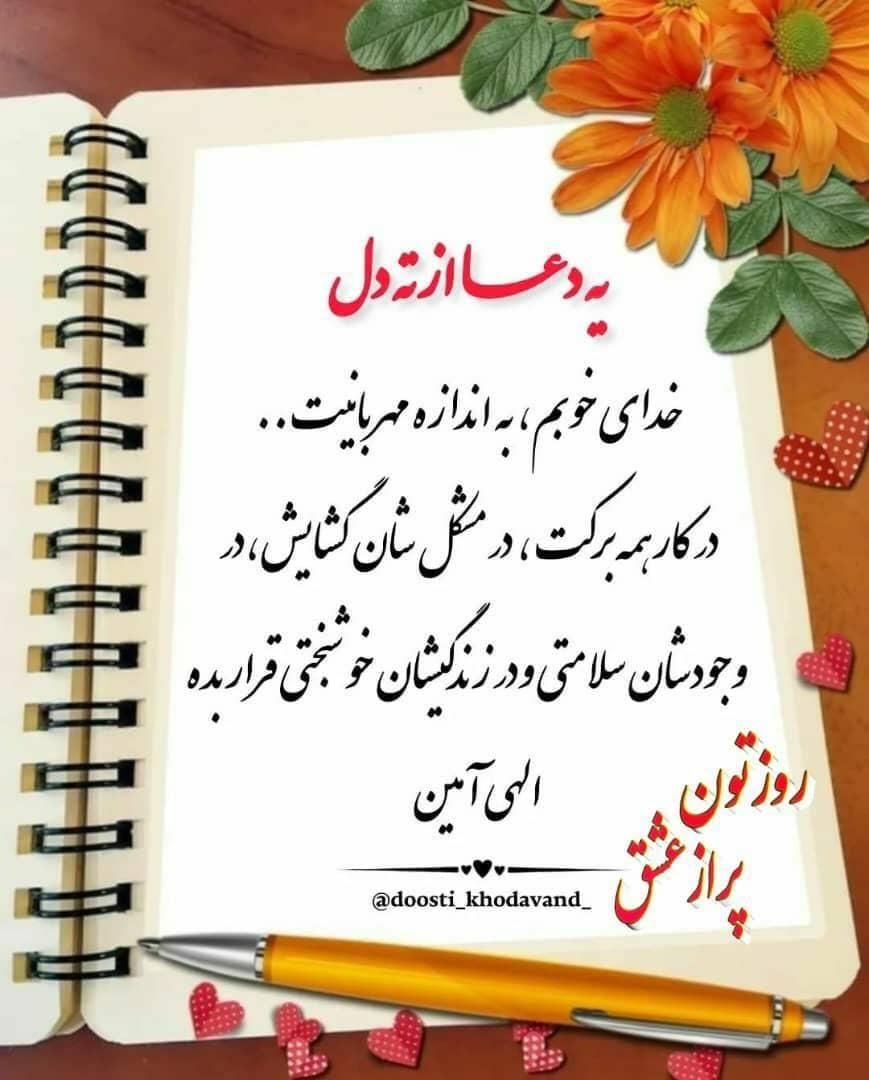 یه دعا از ته دل
خدای خوبم، به اندازه مهربانیت..
در کار همه برکت، در مشکل شان گشایش، در
وجودشان سلامتی و در زندگیشان خوشبختی قرار بده
الهی آمین
روزتون
پر از عشق
@doosti_khodavand_